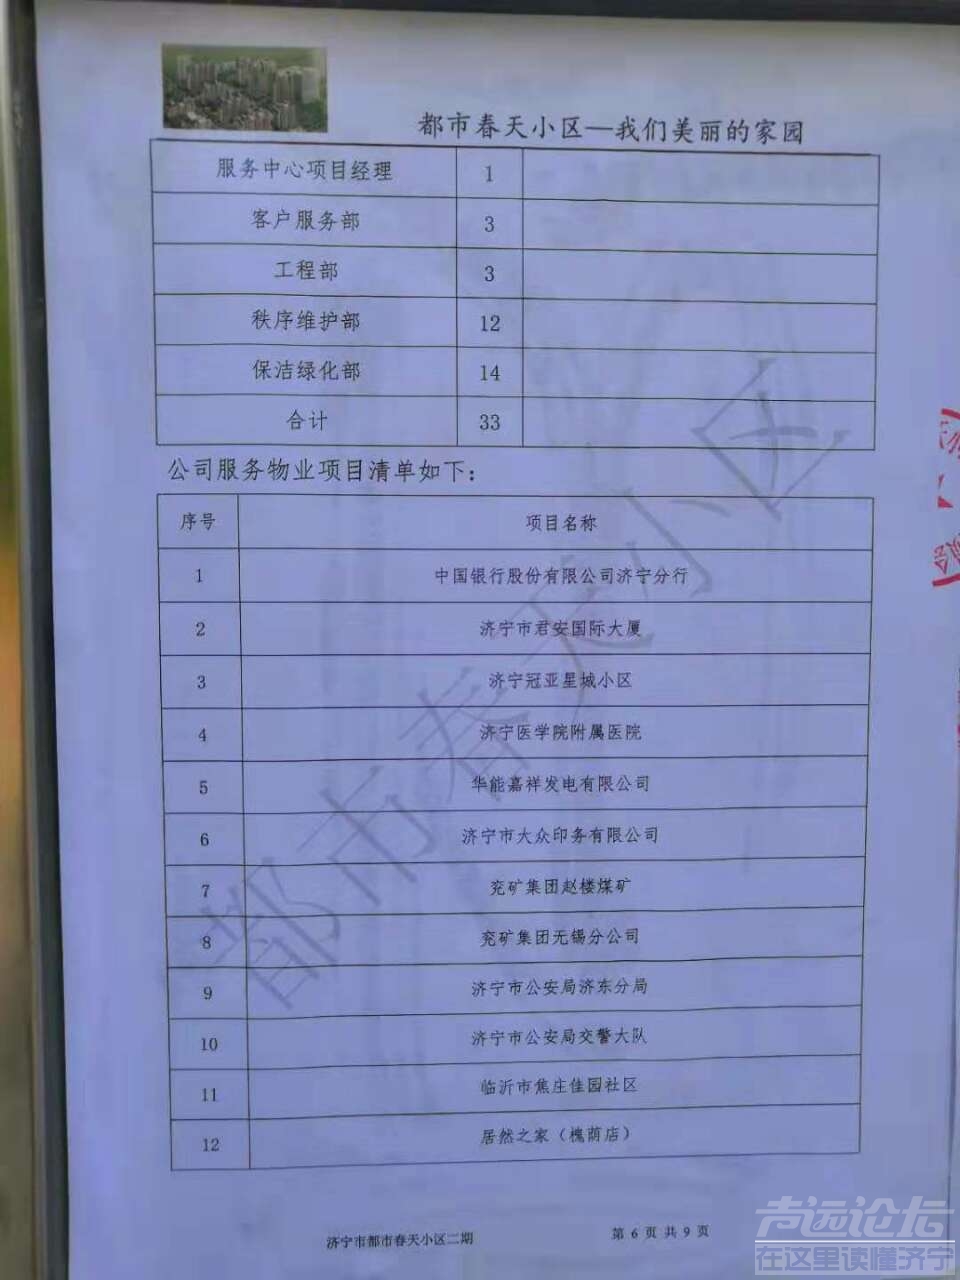 都市春天小区—我们美丽的家园
服务中心项目经理 1
客户服务部 3
工程部 3
秩序维护部 12
保洁绿化部 14
合计 33
公司服务物业项目清单如下：
序号 项目名称
1 中国银行股份有限公司济宁分行
2 济宁市君安国际大厦
3 济宁冠亚星城小区
4 济宁医学院附属医院
5 华能嘉祥发电有限公司
6 济宁市大众印务有限公司
7 兖矿集团赵楼煤矿
8 兖矿集团无锡分公司
9 济宁市公安局济东分局
10 济宁市公安局交警大队
11 临沂市焦庄佳园社区
12 居然之家（槐荫店）
都市春天小区
济宁市都市春天小区二期 第 6 页 共 9 页
声远论坛
在这里读懂济宁